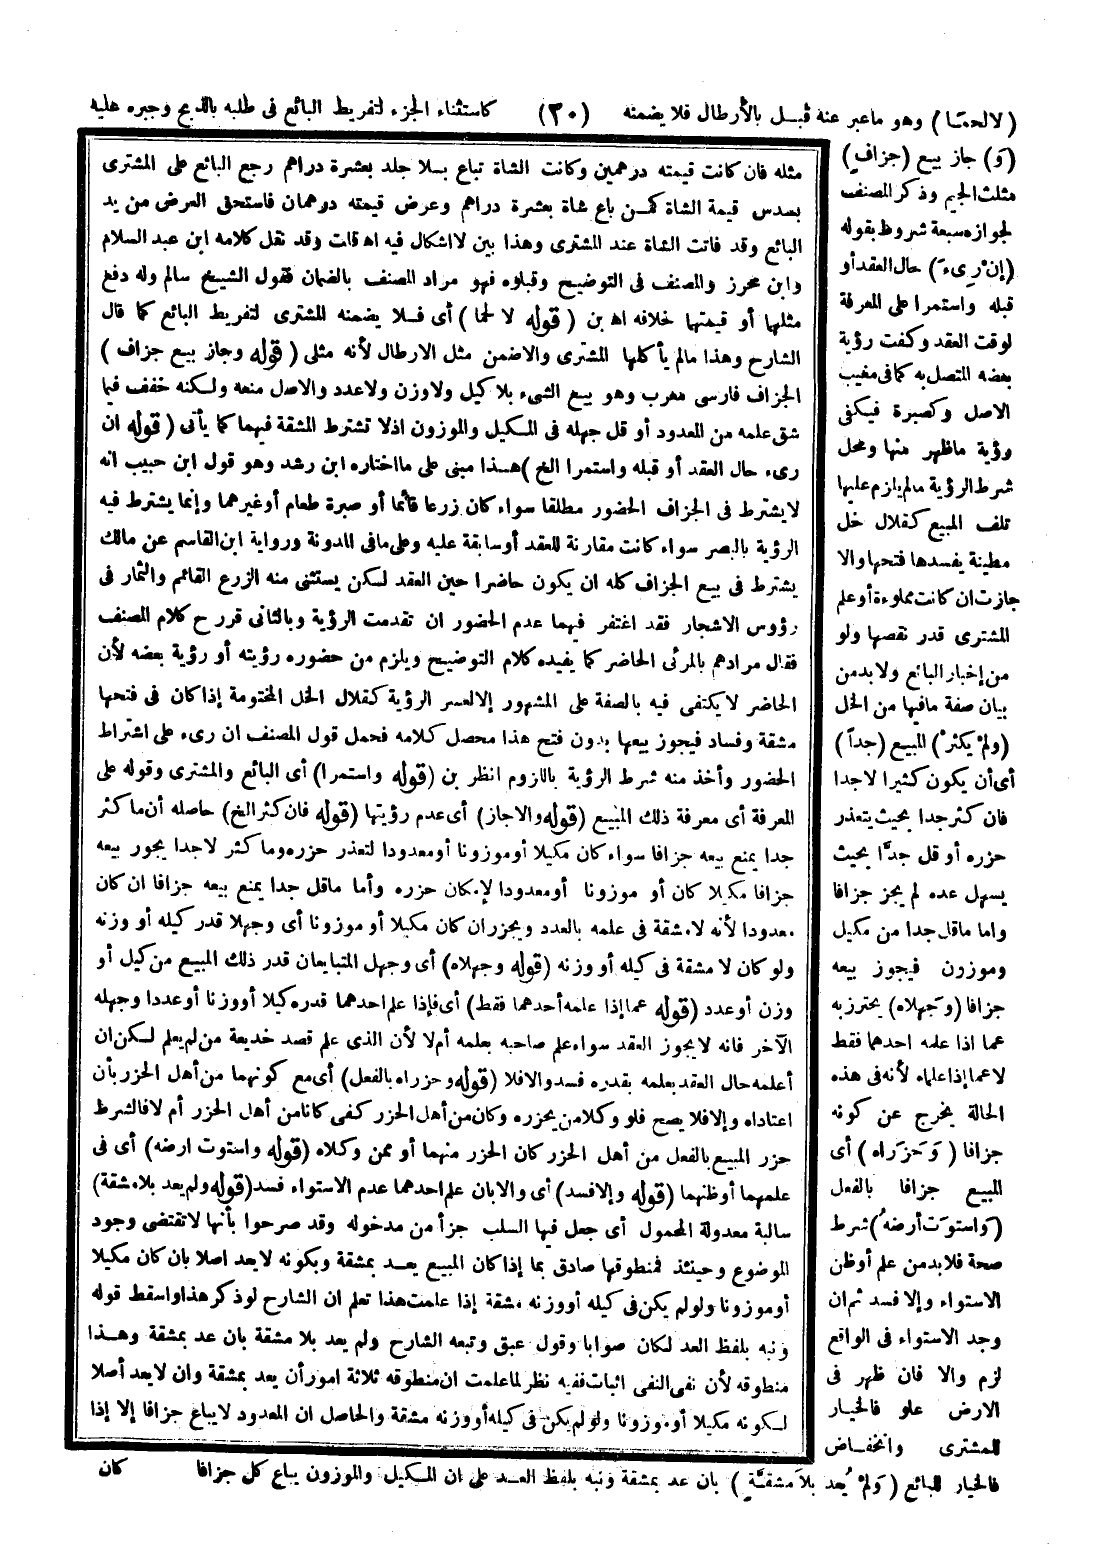 (لا لحمًا) وهو ماعبر عنه قبـل بالأرطال فلا يضمنه (٢٠) كاستثناء الجزء لتفريط البائع فى طلبه بالذبح وجبره عليه
(وَ) جاز بيع (جزافٍ)
مثلث الجيم وذكر المصنف
لجوازه سبعة شروط بقوله
(إنْ رِىءَ) حال العقد أو
قبله واستمرا على المعرفة
لوقت العقد وكفت رؤية
بعضه المتصل به كما فى مغيب
الاصل وكصبرة فيكفى
رؤية ماظهر منها ومحل
شرط الرؤية مالم يلزم عليها
تلف المبيع كقلال خل
مطينة يفسدها فتحها والا
جازت ان كانت مملوءة أو علم
المشترى قدر نقصها ولو
من إخبار البائع ولابد من
بيان صفة مافيها من الخل
(ولمْ يكثرْ) المبيع (جداً)
أى أن يكون كثيرا لا جدا
فان كثر جدا بحيث يتعذر
حزره أو قل جدًّا بحيث
يسهل عده لم يجز جزافا
واما ماقل جدا من مكيل
وموزون فيجوز بيعه
جزافا (وَجهلاه) يحترز به
عما اذا علمه احدهما فقط
لا عما إذا علماه لأنه فى هذه
الحالة يخرج عن كونه
جزافا (وَحزَراه) أى
المبيع جزافا بالفعل
(وَاستوَت أرضهُ) شرط
صحة فلابد من علم أو ظن
الاستواء وإلا فسد ثم ان
وجد الاستواء فى الواقع
لزم والا فان ظهر فى
الارض علو فالخيار
للمشترى وانخفـاض
فالخيار للبائع (وَلمْ يُعد بلاَ مشقـَّةٍ) بان عد بمشقة ونبه بلفظ العـد على ان المـكيل والموزون يباع كل جزافا كان
مثله فان كانت قيمته درهمين وكانت الشاة تباع بـلا جلد بعشرة دراهم رجع البائع على المشترى
بسدس قيمة الشاة كمـن باع شاة بعشرة دراهم وعرض قيمته درهمان فاستحق العرض من يد
البائع وقد فاتت الشاة عند المشترى وهذا بين لا اشكال فيه اه قات وقد نقل كلامه ابن عبد السلام
وابن محرز والمصنف فى التوضيح وقبلوه فهو مراد المصنف بالضمان فقول الشيخ سالم وله دفع
مثلها أو قيمتها خلافه اه بن (قوله لا لحما) أى فـلا يضمنه المشترى لتفريط البائع كما قال
الشارح وهذا مالم يأكلها المشترى والاضمن مثل الارطال لأنه مثلى (قوله وجاز بيع جزاف)
الجزاف فارسى معرب وهو بيع الشىء بلا كيل ولاوزن ولاعدد والاصل منعه ولـكنه خفف فيما
شق علمه من المعدود أو قل جهله فى المـكيل والموزون اذلا تشترط المشقة فيهما كما يأتى (قوله ان
رىء حال العقد أو قبله واستمرا الخ) هـذا مبنى على مااختاره ابن رشد وهو قول ابن حبيب انه
لا يشترط فى الجزاف الحضور مطلقا سواء كان زرعا قائما أو صبرة طعام أو غيرهما وإنما يشترط فيه
الرؤية بالبصر سواء كانت مقارنة للعقد أو سابقة عليه وعلى مافى المدونة ورواية ابن القاسم عن مالك
يشترط فى بيع الجزاف كله ان يكون حاضرا حين العقد لـكن يستثنى منه الزرع القائم والثمار فى
رؤوس الاشجار فقد اغتفر فيهما عدم الحضور ان تقدمت الرؤية وبالثانى قرر ح كلام المصنف
فقال مرادهم بالمرئى الحاضر كما يفيده كلام التوضيح ويلزم من حضوره رؤيته أو رؤية بعضه لأن
الحاضر لا يكتفى فيه بالصفة على المشهور إلا لعسر الرؤية كقلال الخل المختومة إذا كان فى فتحها
مشقة وفساد فيجوز بيعها بدون فتح هذا محصل كلامه فحمل قول المصنف ان رىء على اشتراط
الحضور وأخذ منه شرط الرؤية باللزوم انظر بن (قوله واستمرا) أى البائع والمشترى وقوله على
المعرفة أى معرفة ذلك المبيع (قوله والاجاز) أى عدم رؤيتها (قوله فان كثر الخ) حاصله أن ما كثر
جدا يمنع بيعه جزافا سواء كان مكيلا أو موزونا أو معدودا لتعذر حزره وما كثر لا جدا يجوز بيعه
جزافا مكيلا كان أو موزونا أو معدودا لإمكان حزره وأما ماقل جدا يمنع بيعه جزافا ان كان
معدودا لأنه لا مشقة فى علمه بالعدد ويجزران كان مكيلا أو موزونا أى وجهلا قدر كيله أو وزنه
ولو كان لا مشقة فى كيله أو وزنه (قوله وجهلاه) أى وجهل المتبايعان قدر ذلك المبيع من كيل أو
وزن أو عدد (قوله عما إذا علمه أحدهما فقط) أى فإذا علم احدهما قدره كيلا أو وزنا أو عددا وجهله
الآخر فانه لا يجوز العقد سواء علم صاحبه بعلمه أم لا لأن الذى علم قصد خديعة من لم يعلم لـكن ان
أعلمه حال العقد بعلمه بقدره فسد والا فلا (قوله وحزراه بالفعل) أى مع كونهما من أهل الحزر بأن
اعتاداه وإلا فلا يصح فلو وكلا من يحزره وكان من أهل الحزر كفى كانا من أهل الحزر أم لا فالشرط
حزر المبيع بالفعل من أهل الحزر كان الحزر منهما أو ممن وكلاه (قوله واستوت ارضه) أى فى
علمهما أو ظنهما (قوله وإلا فسد) أى والا بان علم احدهما عدم الاستواء فسد (قوله ولم يعد بلا مشقة)
سالبة معدولة المحمول أى جعل فيها السلب جزأ من مدخوله وقد صرحوا بأنها لا تقتضى وجود
الموضوع وحينئذ فمنطوقها صادق بما إذا كان المبيع يعـد بمشقة وبكونه لا يعد اصلا بان كان مكيلا
أو موزونا ولو لم يكن فى كيله أو وزنه مشقة إذا علمت هذا تعلم ان الشارح لو ذكر هذا واسقط قوله
ونبه بلفظ العد لكان صوابا وقول عبق وتبعه الشارح ولم يعد بلا مشقة بان عد بمشقة وهـذا
منطوقه لأن نفى النفى اثبات ففيه نظر لما علمت ان منطوقه ثلاثة امور أن يعد بمشقة وان لا يعد أصلا
لـكونه مكيلا أو موزونا ولو لم يكن فى كيله أو وزنه مشقة والحاصل ان المعدود لا يباع جزافا إلا إذا